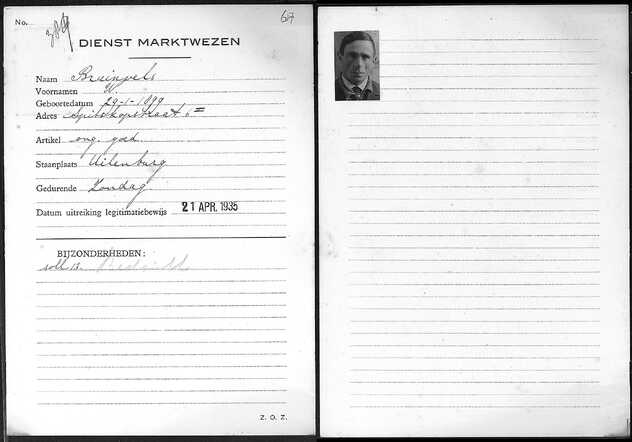 No. 389
67
DIENST MARKTWEZEN
Naam Bruinvels
Voornamen
Geboortedatum 29-1-1899
Adres
Artikel ong. goed
Staanplaats Uilenburg
Gedurende Zondag
Datum uitreiking legitimatiebewijs 21 APR. 1935
BIJZONDERHEDEN:
Z. O. Z.